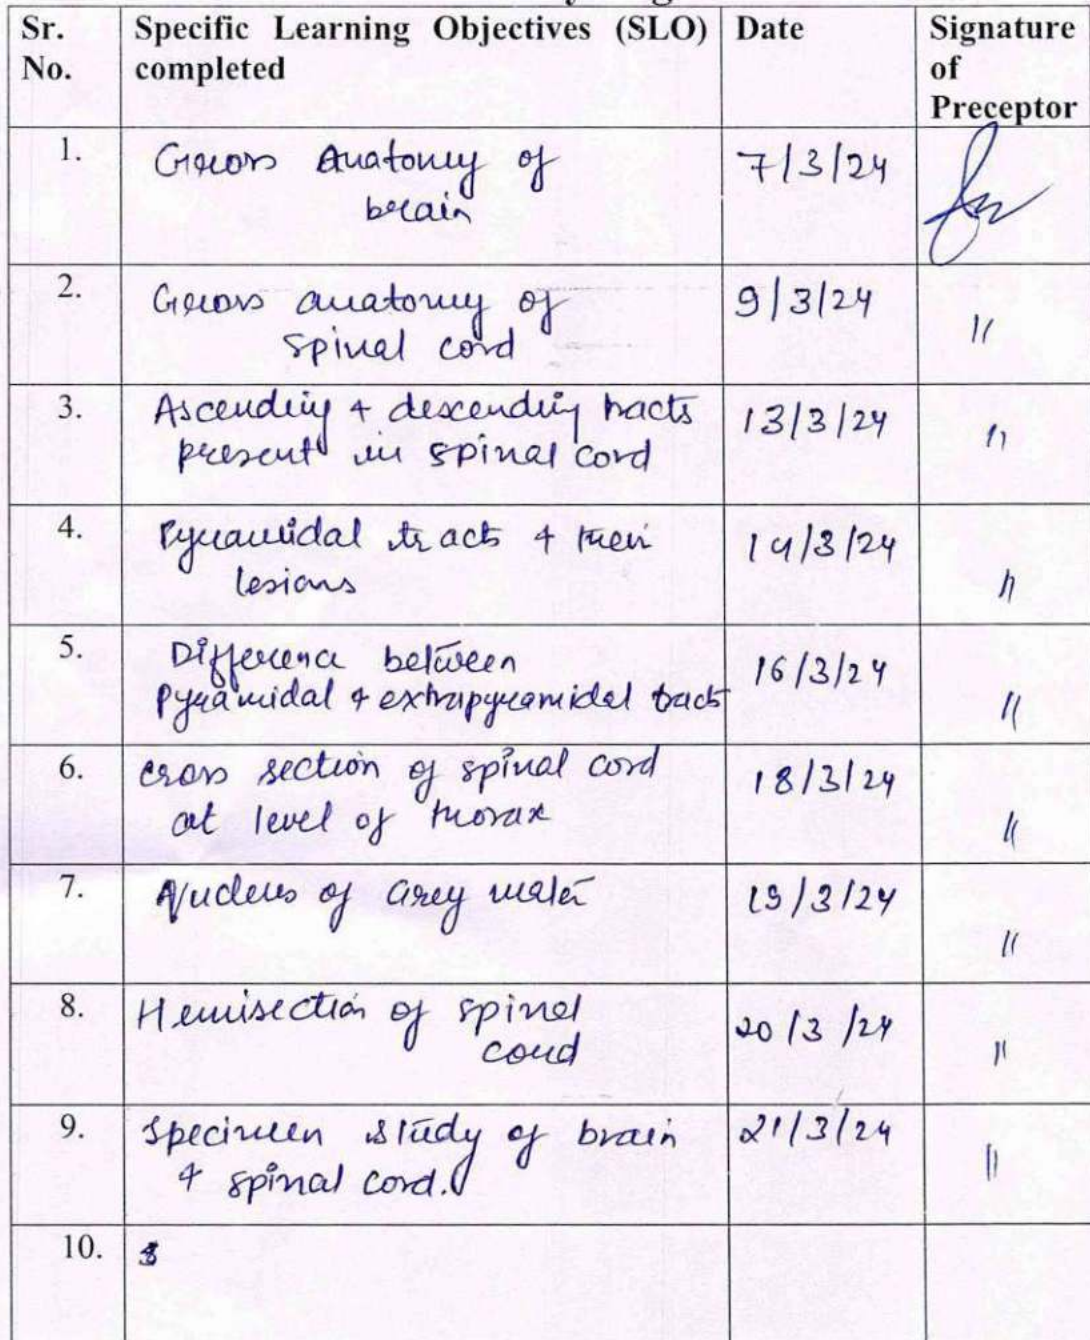 Sr. No.
Specific Learning Objectives (SLO) completed
Date
Signature of Preceptor
1.
Gross Anatomy of
brain
7/3/24
2.
Gross anatomy of
spinal cord
9/3/24
"
3.
Ascending + descending tracts
present in spinal cord
13/3/24
"
4.
Pyramidal tracts + their
lesions
14/3/24
"
5.
Difference between
Pyramidal + extrapyramidal tract
16/3/24
"
6.
cross section of spinal cord
at level of thorax
18/3/24
"
7.
Nucleus of Grey matter
19/3/24
"
8.
Hemisection of spinal
cord
20/3/24
"
9.
Specimen study of brain
+ spinal cord.
21/3/24
"
10.